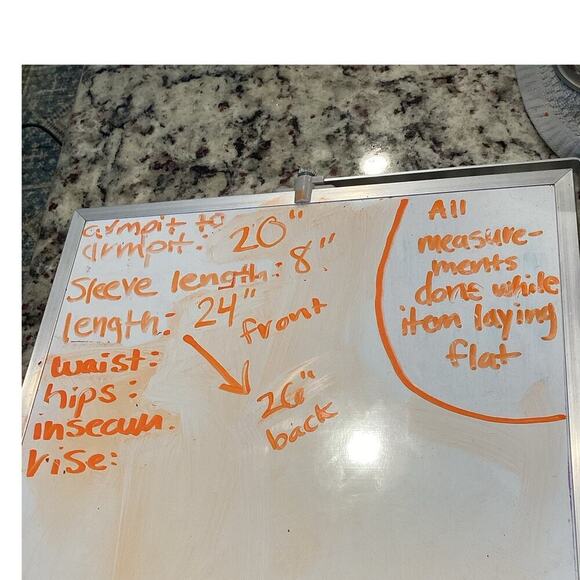 armpit to
armpit: 20"
Sleeve length: 8"
length: 24" front
26" back
waist:
hips:
inseam:
rise:
All
measure-
ments
done while
item laying
flat